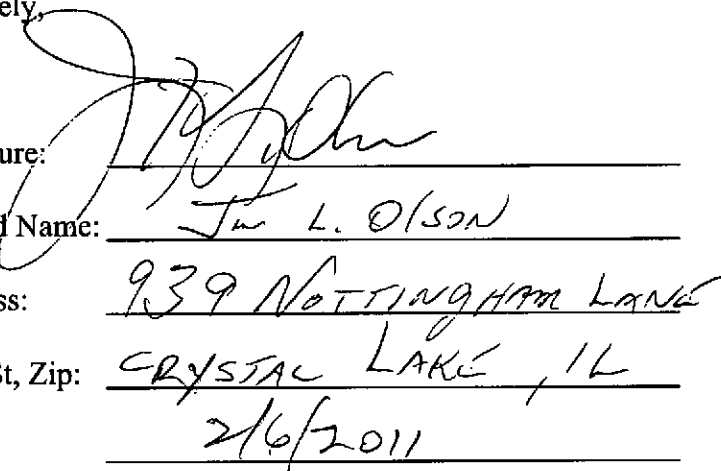 ely,
ure:
d Name: L. Olson
ss: 939 NOTTINGHAM LANE
St, Zip: CRYSTAL LAKE, IL
2/6/2011